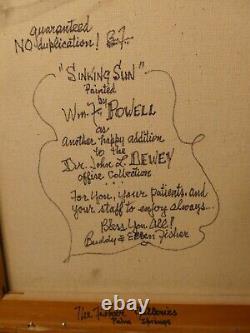 guaranteed
NO duplication! B.F.
"SINKING SUN"
Painted
by
Wm. F. POWELL
as
another happy addition
to the
Dr. John L. DEWEY
office Collection
For You, Your Patients, and
your staff to enjoy always...
Bless You All!
Buddy & Eileen Fisher
The Fisher Galleries
Palm Springs